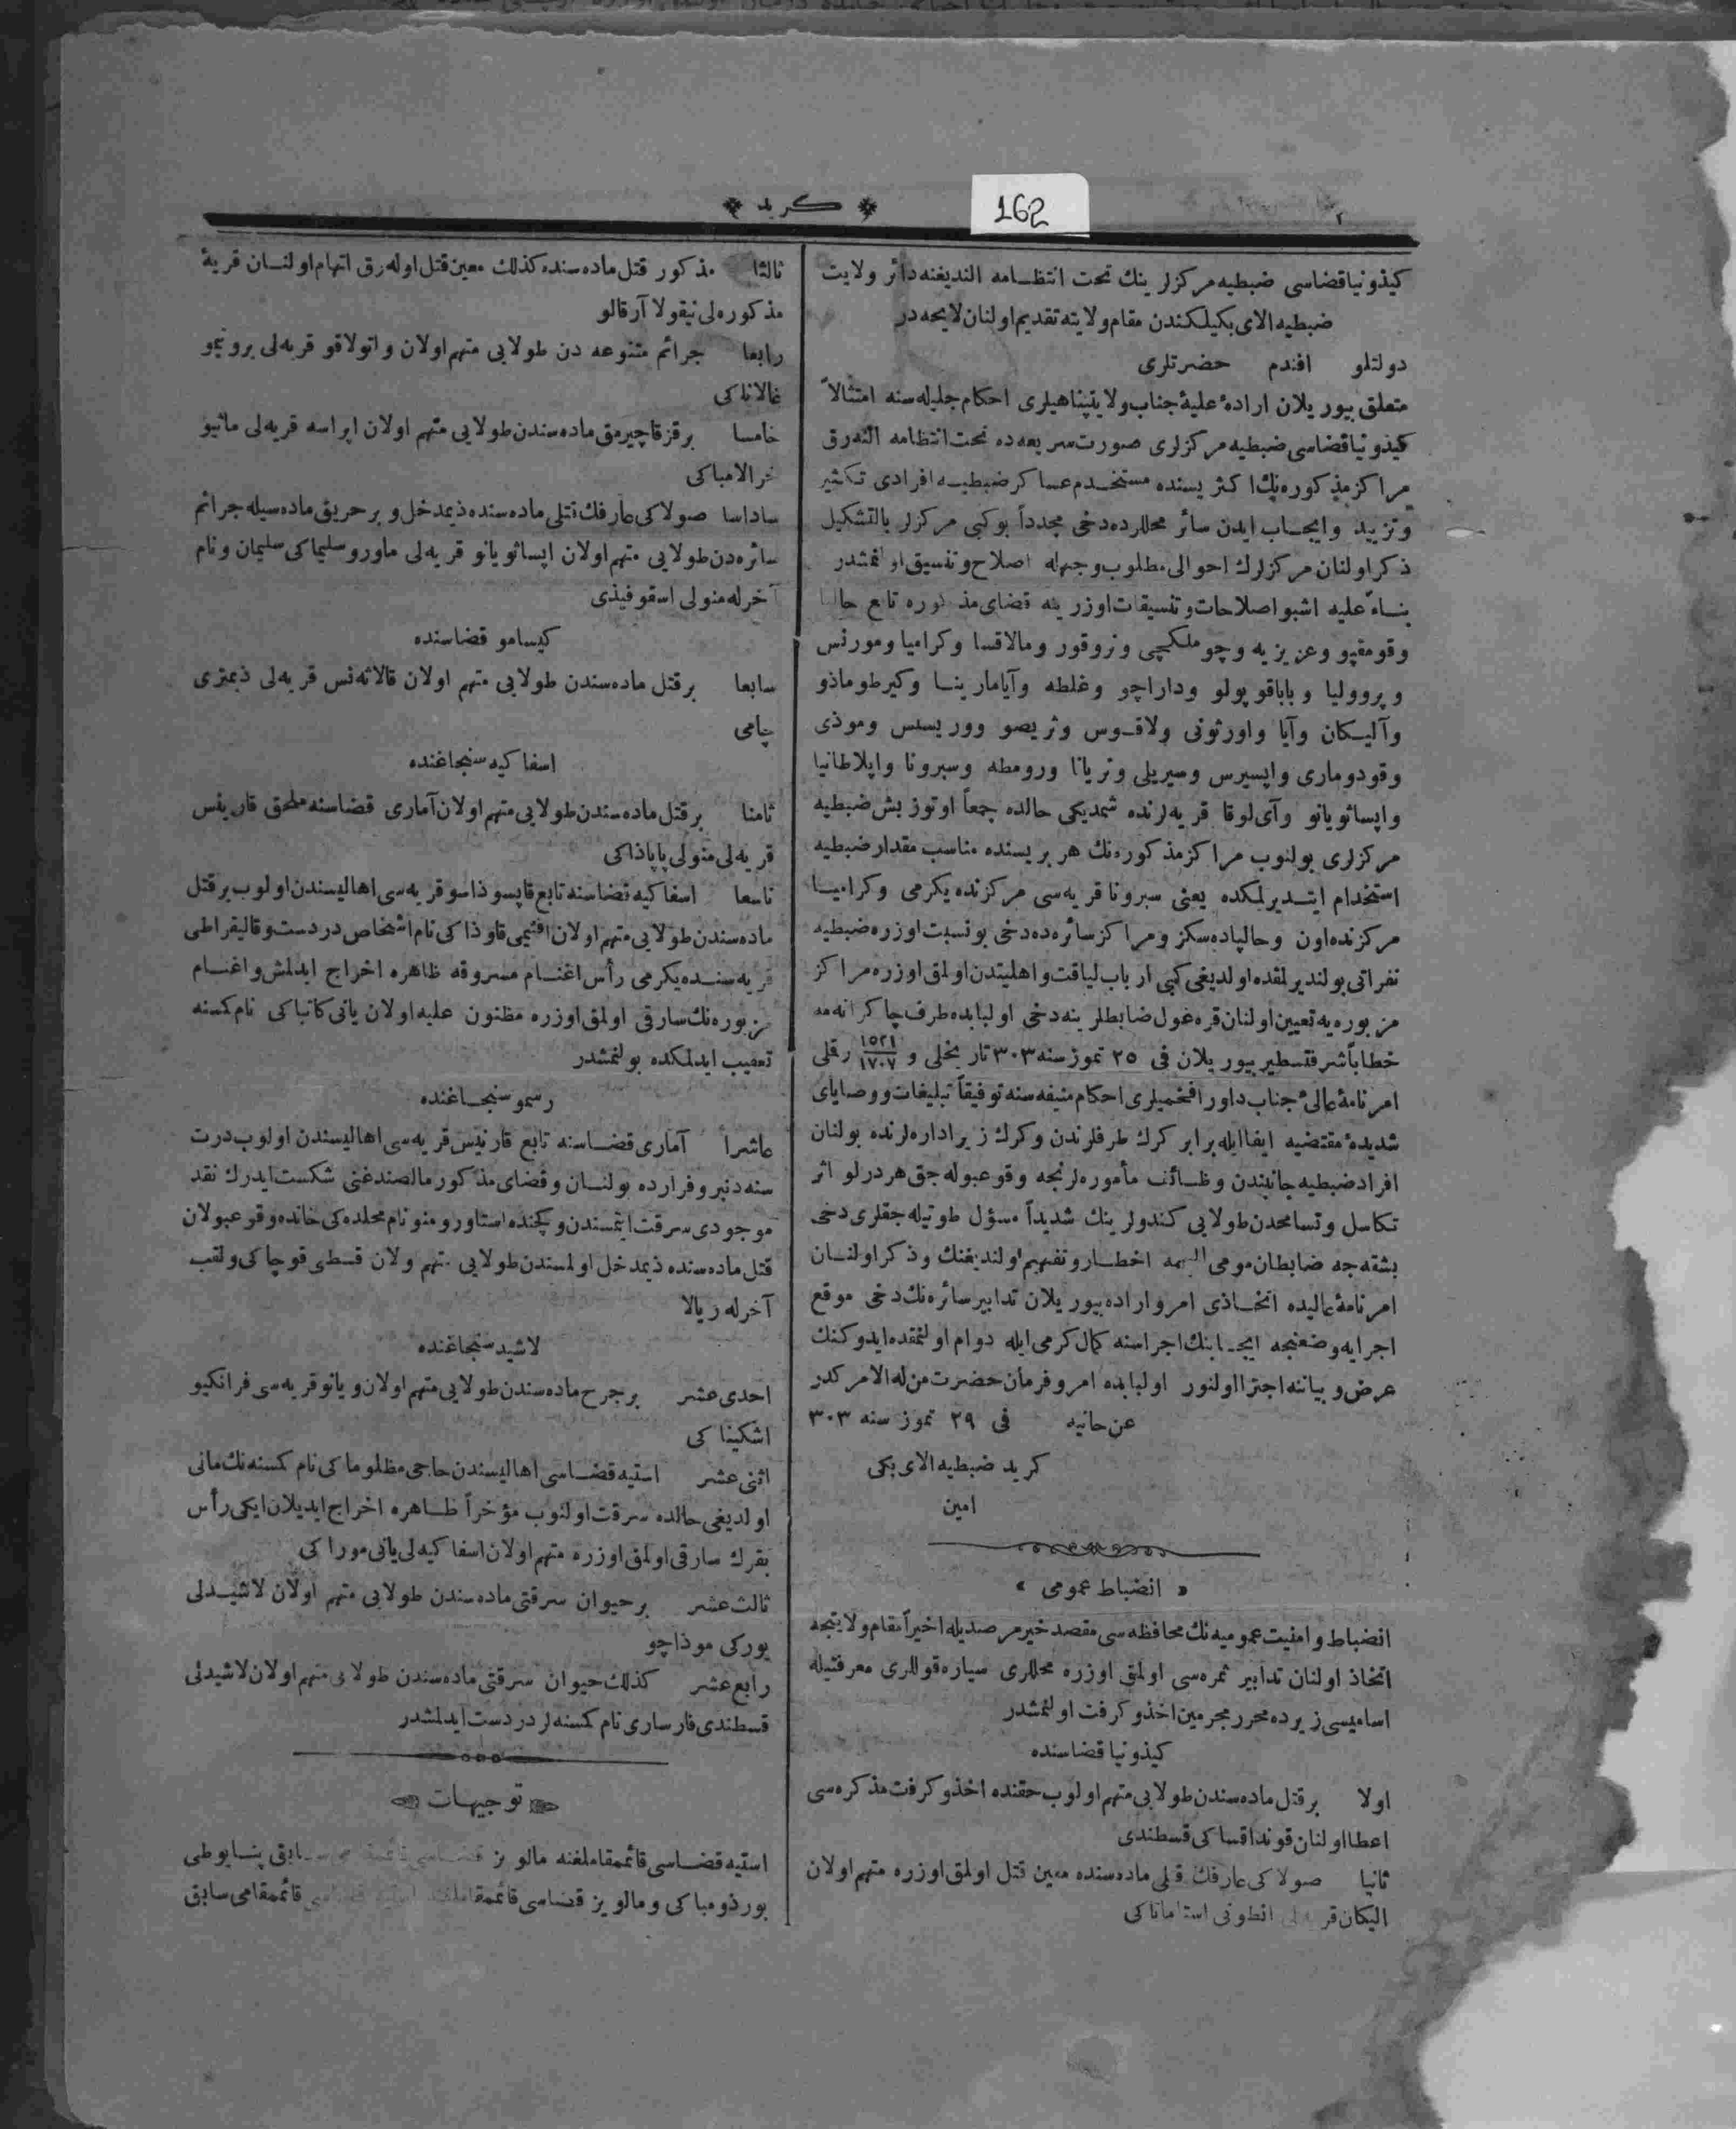 ٢
كريد
162
كيذونيا قضاسى ضبطيه مركزلرينك تحت انتظامه النديغنه دائر ولايت
ضبطيه الاى بكيلكندن مقام ولايته تقديم اولنان لايحه در
دولتلو افندم حضرتلرى
متعلق بيوريلان ارادهٔ عليهٔ جناب ولايتپناهيلرى احكام جليله سنه امتثالاً
كيذونيا قضاسى ضبطيه مركزلرى صورت سريعه ده تحت انتظامه النه رق
مراكز مذكوره نك اكثريسنده مستخدم عساكر ضبطيه افرادى تكثير
وتزييد وايجاب ايدن سائر محللرده دخى مجدداً بوكبى مركزلر بالتشكيل
ذكر اولنان مركزلرك احوالى مطلوب وجهله اصلاح وتنسيق اولنمشدر
بناءً عليه اشبو اصلاحات وتنسيقات اوزرينه قضاى مذكوره تابع حالپا
وقومقپو وعزيزيه وچو ملكجى ونزوقور ومالاقسا وكراميا ومورنس
وپرووليا وباباقوپولو وداراچو وغلطه وآيامارينا وكيرطوماذو
وآليكان وآيا واورثونى ولاقوس وتريصو ووريسس وموذى
وقودومارى واپسيرس وسيريلى وتريانا ورومطه وسبرونا واپلاطانيا
واپساثويانو وآى لوقا قريه لرنده شمديكى حالده جمعاً اوتوز بش ضبطيه
مركزلرى بولنوب مراكز مذكوره نك هر بريسنده مناسب مقدار ضبطيه
استخدام ايتديرلمكده يعنى سبرونا قريه سى مركزنده يكرمى وكراميا
مركزنده اون وحالپاده سكز ومراكز سائره ده دخى بو نسبت اوزره ضبطيه
نفراتى بولنديرلمقده اولديغى كبى ارباب لياقت واهليتدن اولمق اوزره مراكز
مزبوره يه تعيين اولنان قره غول ضابطلرينه دخى اولبابده طرف چاكرانه مه
خطاباً شرفتسطير بيوريلان فى ٢٥ تموز سنه ٣٠٣ تاريخلى و ١٥٢١/١٧٠٧ رقملى
امرنامهٔ عالىٔ جناب داورافخميلرى احكام منيفه سنه توفيقاً تبليغات ووصاياى
شديدهٔ مقتضيه ايفا ايله برابر كرك طرفلرندن وكرك زير اداره لرنده بولنان
افراد ضبطيه جانبندن وظائف مأموره لرنجه وقوعبوله جق هر درلو اثر
تكاسل وتسامحدن طولايى كندولرينك شديداً مسؤل طوتيله جقلرى دخى
بشقه جه ضابطان مومى اليهمه اخطار وتفهيم اولنديغنك وذكر اولنان
امرنامهٔ عاليده اتخاذى امر واراده بيوريلان تدابير سائره نك دخى موقع
اجرايه وضعنجه ايجابنك اجراسنه كمال كرمى ايله دوام اولنمقده ايدوكنك
عرض وبياننه اجترا اولنور اولبابده امر وفرمان حضرت من له الامر كدر
عن حانيه فى ٢٩ تموز سنه ٣٠٣
كريد ضبطيه الاى بكى
امين
« انضباط عمومى »
انضباط وامنيت عموميه نك محافظه سى مقصد خير مرصديله اخيراً مقام ولايتجه
اتخاذ اولنان تدابير ثمره سى اولمق اوزره محللرى سياره قوللرى معرفتيله
اساميسى زيرده محرر مجرمين اخذوكرفت اولنمشدر
كيذونيا قضاسنده
اولا برقتل ماده سندن طولايى متهم اولوب حقنده اخذوكرفت مذكره سى
اعطا اولنان قونداقساكى قسطندى
ثانيا صولاكى عارفك قتلى ماده سنده معين قتل اولمق اوزره متهم اولان
اليكان انطونى استاماتاكى
ثالثا مذكور قتل ماده سنده كذلك معين قتل اوله رق اتهام اولنان قريهٔ
مذكوره لى نيقولا آرقالو
رابعا جرائم متنوعه دن طولايى متهم اولان واتولاقو قريه لى برونيمو
غالاناكى
خامسا برقز قاچيرمق ماده سندن طولايى متهم اولان ايراسه قريه لى مانيو
خرالامباكى
سادسا صولاكى عارفك قتلى ماده سنده ذيمدخل وبر حريق ماده سيله جرائم
سائره دن طولايى متهم اولان اپساثويانو قريه لى ماورو سليماكى سليمان ونام
آخرله منولى اسقوفيذى
كيسامو قضاسنده
سابعا برقتل ماده سندن طولايى متهم اولان قالاثه نس قريه لى ذيمترى
چامى
اسفاكيه سنجاغنده
ثامنا برقتل ماده سندن طولايى متهم اولان آمارى قضاسنه ملحق قارينس
قريه لى منولى پاپاذاكى
تاسعا اسفاكيه قضاسنه تابع قاپسوذاسو قريه سى اهاليسندن اولوب برقتل
ماده سندن طولايى متهم اولان افتيمى قاوذاكى نام اشخاص دردست وقاليقراطى
قريه سنده يكرمى رأس اغنام مسروقه ظاهره اخراج ايدلمش واغنام
مزبوره نك سارقى اولمق اوزره مظنون عليه اولان يانى كاتباكى نام كمسنه
تعقيب ايدلمكده بولنمشدر
رسمو سنجاغنده
عاشراً آمارى قضاسنه تابع قارنيس قريه سى اهاليسندن اولوب درت
سنه دنبرو فرارده بولنان وقضاى مذكور مال صندغنى شكست ايدرك نقد
موجودى سرقت ايتمسندن وكچنده استاورومنو نام محلده كى خانده وقوعبولان
قتل ماده سنده ذيمدخل اولمسندن طولايى متهم ولان قسطى قوچاكى ولقب
آخرله زيالا
لاشيد سنجاغنده
احدى عشر برجرح ماده سندن طولايى متهم اولان ويانو قريه سى فرانكيو
اشكيناكى
اثنى عشر استيه قضاسى اهاليسندن حاجى مظلوماكى نام كمسنه نك مالى
اولديغى حالده سرقت اولنوب مؤخراً ظاهره اخراج ايديلان ايكى رأس
بقرك سارقى اولمق اوزره متهم اولان اسفاكيه لى يانى موراكى
ثالث عشر برحيوان سرقتى ماده سندن طولايى متهم اولان لاشيدلى
يوركى موذاچو
رابع عشر كذلك حيوان سرقتى ماده سندن طولايى متهم اولان لاشيدلى
قسطندى فارسارى نام كمسنه لر دردست ايدلمشدر
توجيهات
استيه قضاسى قائممقاملغنه مالويز قضاسى سابق پنايوطى
بورذومباكى ومالويز قضاسى قائممقامى سابق